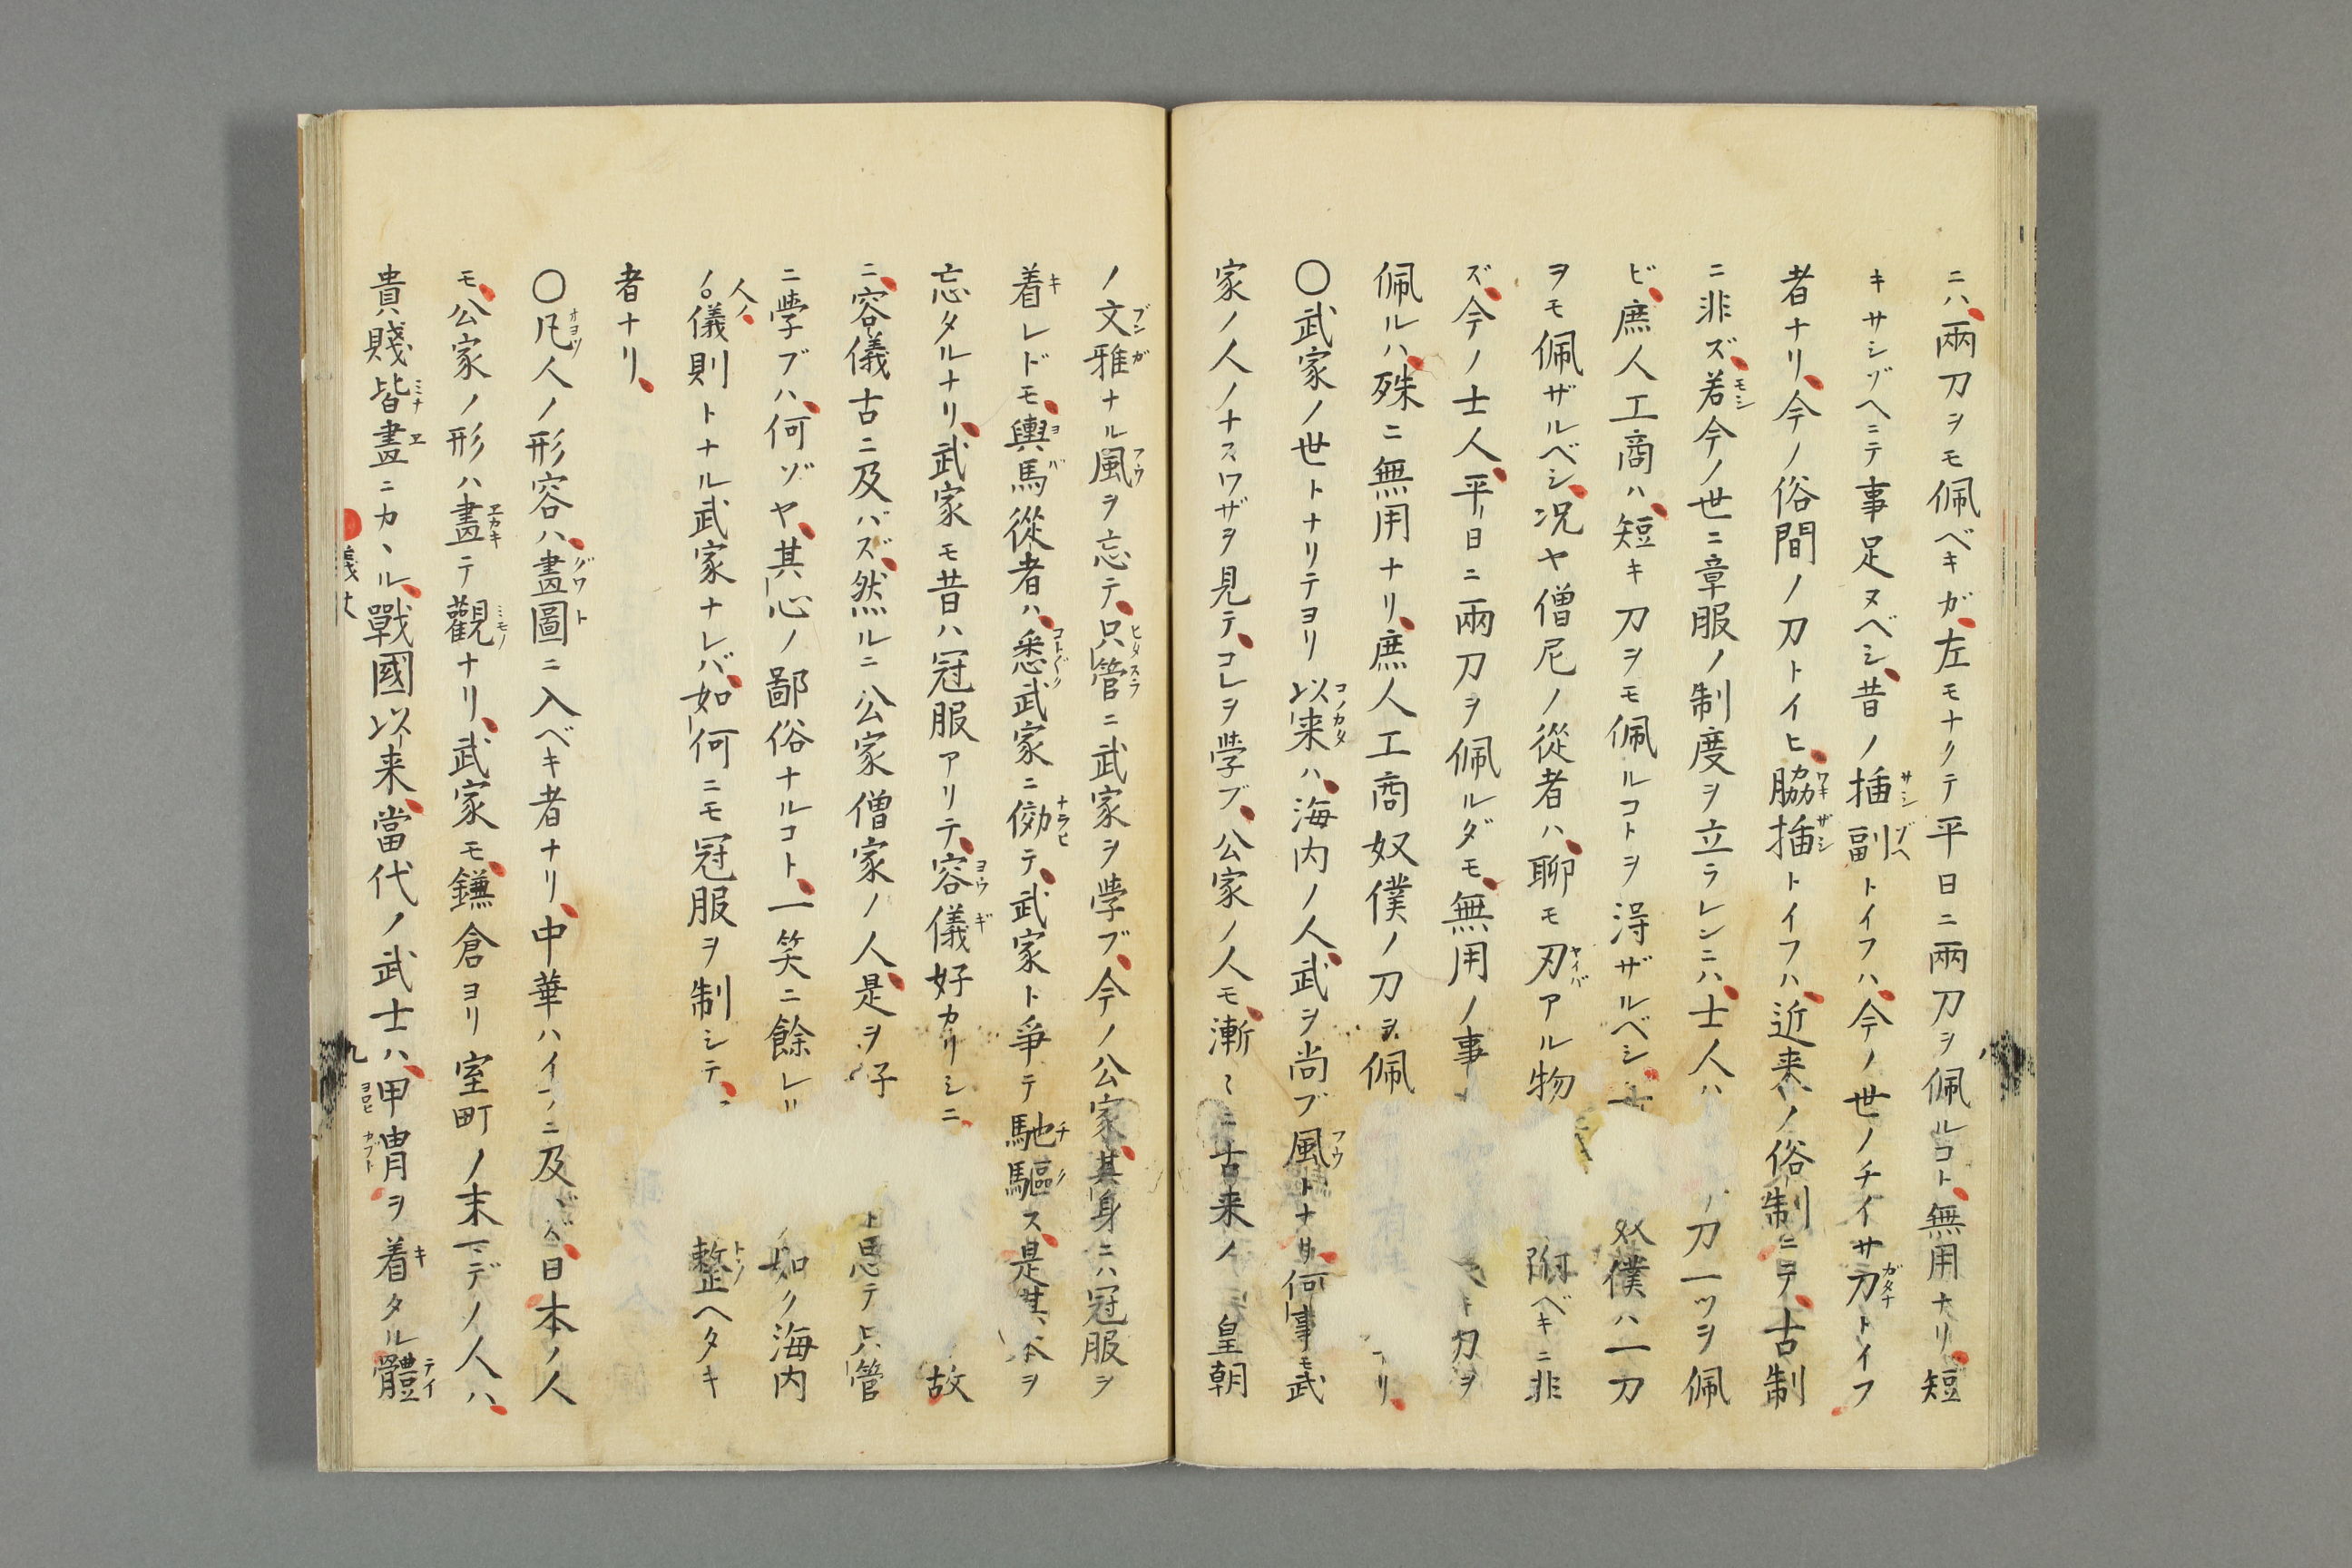 ニハ、兩刀ヲモ佩ベキガ、左モナクテ平日ニ兩刀ヲ佩ルコト、無用ナリ、短
キサシゾヘニテ事足ヌベシ、昔ノ插副トイフハ、今ノ世ノチイサ刀トイフ
者ナリ、今ノ俗間ノ刀トイヒ、脇插トイフハ、近来ノ俗制ニテ、古制
ニ非ズ、若今ノ世ニ章服ノ制度ヲ立ラレンニハ、士人ハ ノ刀一ツヲ佩
ビ、庶人工商ハ、短キ刀ヲモ佩ルコトヲ得ザルベシ、 奴僕ハ一刀
ヲモ佩ザルベシ、况ヤ僧尼ノ從者ハ、聊モ刃アル物 附ベキニ非
ズ、今ノ士人、平日ニ兩刀ヲ佩ルダモ、無用ノ事 キ刀ヲ
佩ルハ、殊ニ無用ナリ、庶人工商奴僕ノ刀ヲ佩 リ、
〇武家ノ世トナリテヨリ以来ハ、海内ノ人、武ヲ尚ブ風トナリ、何事モ武
家ノ人ノナスワザヲ見テ、コレヲ學ブ、公家ノ人モ、漸〻ニ古来ノ 皇朝
ノ文雅ナル風ヲ忘テ、只管ニ武家ヲ學ブ、今ノ公家、其身ニハ冠服ヲ
着レドモ、輿馬從者ハ、悉武家ニ傚テ、武家ト爭テ馳驅ス、是其本ヲ
忘タルナリ、武家モ昔ハ冠服アリテ、容儀好カリシニ、 故
ニ、容儀古ニ及バズ、然ルニ公家僧家ノ人、是ヲ ト思テ只管
ニ學ブハ、何ゾヤ、其心ノ鄙俗ナルコト、一笑ニ餘レリ 如ク海内
人ノ、
ノ儀則トナル武家ナレバ、如何ニモ冠服ヲ制シテ、 整ヘタキ
者ナリ、
〇凡人ノ形容ハ、畫圖ニ入ベキ者ナリ、中華ハイフニ及バズ、日本ノ人
モ、公家ノ形ハ畫テ觀ナリ、武家モ、鎌倉ヨリ室町ノ末マデノ人ハ、
貴賤皆畫ニカヽル、戰國以来、當代ノ武士ハ、甲冑ヲ着タル體
九